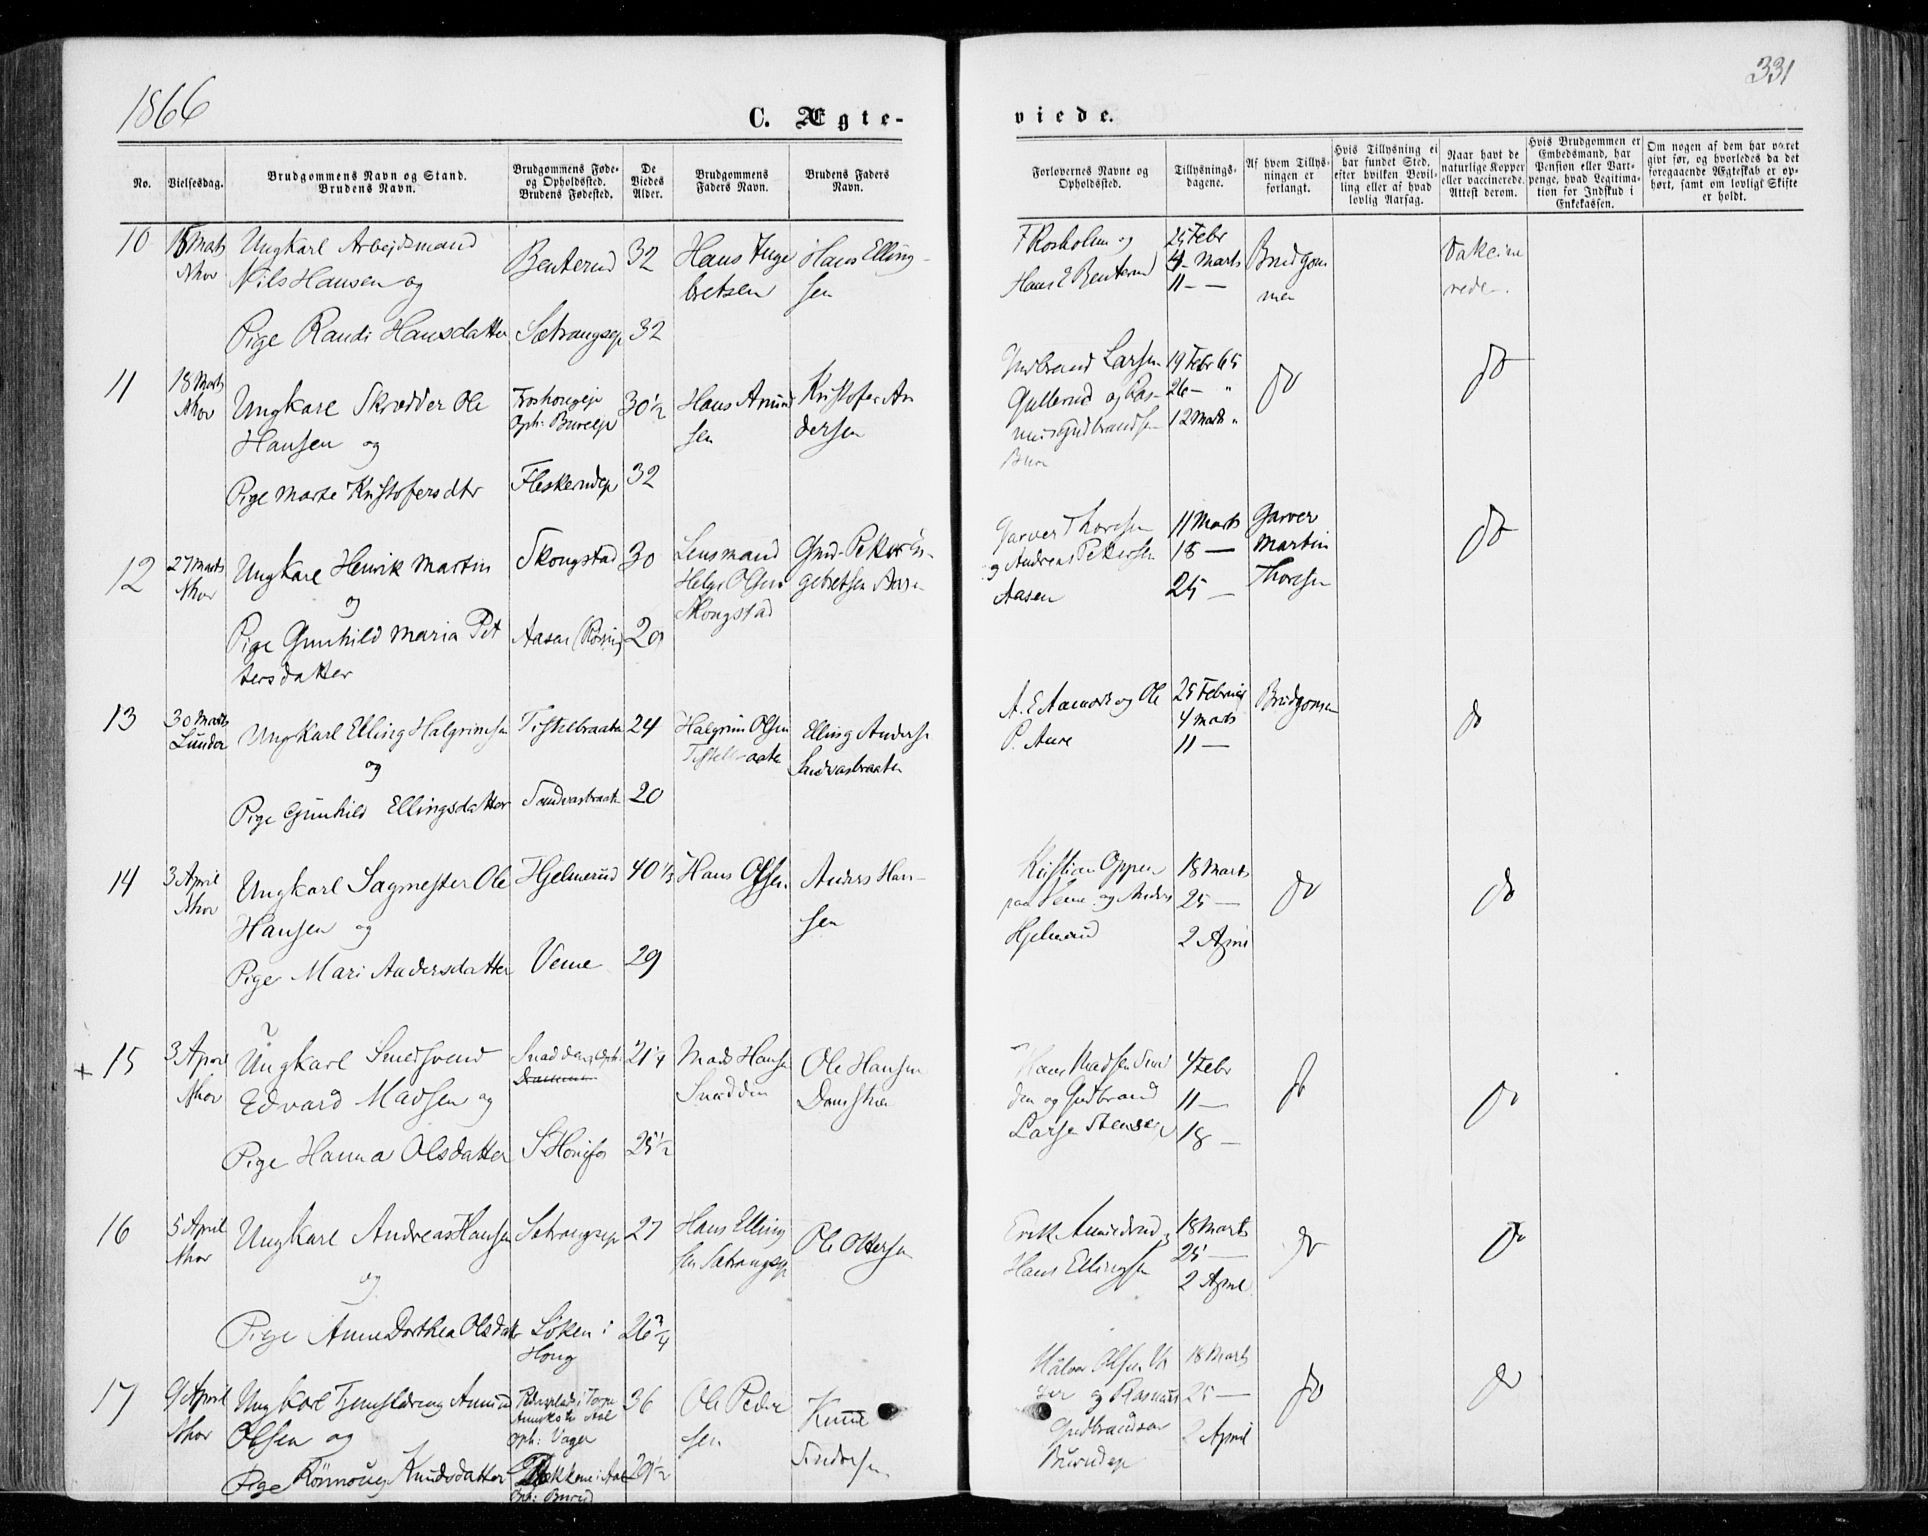 1866
331
C. Ægte-
viede.
No.
Vielsesdag.
Brudgommens Navn og Stand.
Brudens Navn.
Brudgommens Føde-
og Opholdssted.
Brudens Fødested.
De
Viedes
Alder.
Brudgommens
Faders Navn.
Brudens Faders
Navn.
Forlovernes Navne og
Opholdssted.
Tillysnings-
dagene.
Af hvem Tillys-
ningen er
forlangt.
Hvis Tillysning ei
har fundet Sted,
efter hvilken Bevil-
ling eller af hvad
lovlig Aarsag.
Naar havt de
naturlige Kopper
eller vaccinerede.
Attest derom.
Hvis Brudgommen er
Embedsmand, har
Pension eller Vart-
penge, hvad Legitima-
tion for Indskud i
Enkekassen.
Om nogen af dem har været
givt før, og hvorledes da det
foregaaende Ægteskab er op-
hørt, samt om lovligt Skifte
er holdt.
10
Marts
Nhov
Ungkarl Arbejdsmand
Nils Hansen og
Pige Randi Hansdatter
Benterud
Sætrangsep
32
32
Hans Inge
bretsen
Hans Elling-
sen
F Rosholm og
Hans E Benterud
25 Febr
4 - Marts
11 - -
Brudgom
men
Vakcine
rede.
11
18 Marts
Nhov
Ungkarl Skrædder Ole
Hansen og
Pige Marte Kristofersdtr
Oph: Bureejr
Fleskerudejr
30½
32
Hans Amund
sen
Kristofer An
dersen
Gudbrand Larsen
Gullerud og Ras-
mus Gudbrandsen
Bure
19 Febr 65
26 - "
12 Marts "
do
do
12
27 Marts
Nhov
Ungkarl Henrik Martin
og
Pige Gunhild Maria Pet
tersdatter
Skongstad
Aasen
30
29
Lensmand
Helge Olsen
Skongstad
Gmd. Petter En-
gebretsen Aasen
Garver Thoresen
og Andreas Pettersen
Aasen
11 Marts
18 -
25 -
Garver
Martin
Thoresen
do
13
30 Marts
Lunder
Ungkarl Elling Halgrimsen
og
Pige Gunhild Ellingsdatter
Tistelbraaten
Sandvasbraaten
24
20
Halgrim Olsen
Tistelbraate
Elling Andersen
Sandvasbraaten
A. E Aamodt og Ole
P. Aure
25 Februar
4 Marts
11 -
Brudgomen
do
14
3 April
Nhov
Ungkarl Sagmester Ole
Hansen og
Pige Mari Andersdatter
Hjelmerud
Veme
40
29
Hans Olsen
Anders Han-
sen
Kristian Oppen
paa Veme og Anders
Hjelmerud
18 Marts
25 -
2 April
do
do
+ 15
3 April
Nhov
Ungkarl Smedsvend
Edvard Madsen og
Pige Hanna Olsdatter
Snadden, Oph:
Drammen
S Hönefos
21¼
25½
Mads Hansen
Snadden
Ole Hansen
Hans Madsen Snad
den og Gudbrand
Larsen Stensen
4 Febr
11 -
18 -
do
do
16
5 April
Nhov
Ungkarl Andreas Hansen
og
Pige Anne Dorthea Olsdatter
Sætrangsejr
Löken i
Houg
27
26¾
Hans Elling
sen Sætrangsejr
Ole Ottersen
Erik Amundrud og
Hans Ellingsen
18 Marts
25 -
2 April
do
do
17
9 April
Nhov
Ungkarl Amund
Olsen og
Pige Rönnoug Knudsdatter
Oph: Vager
Oph: Burud
36
29½
Ole Peder
sen
Knud
Sindresen
Halvor Olsen Va
ger og Rasmus
Gudbrandsen
Burudejr
18 Marts
25 -
2 April
do
do